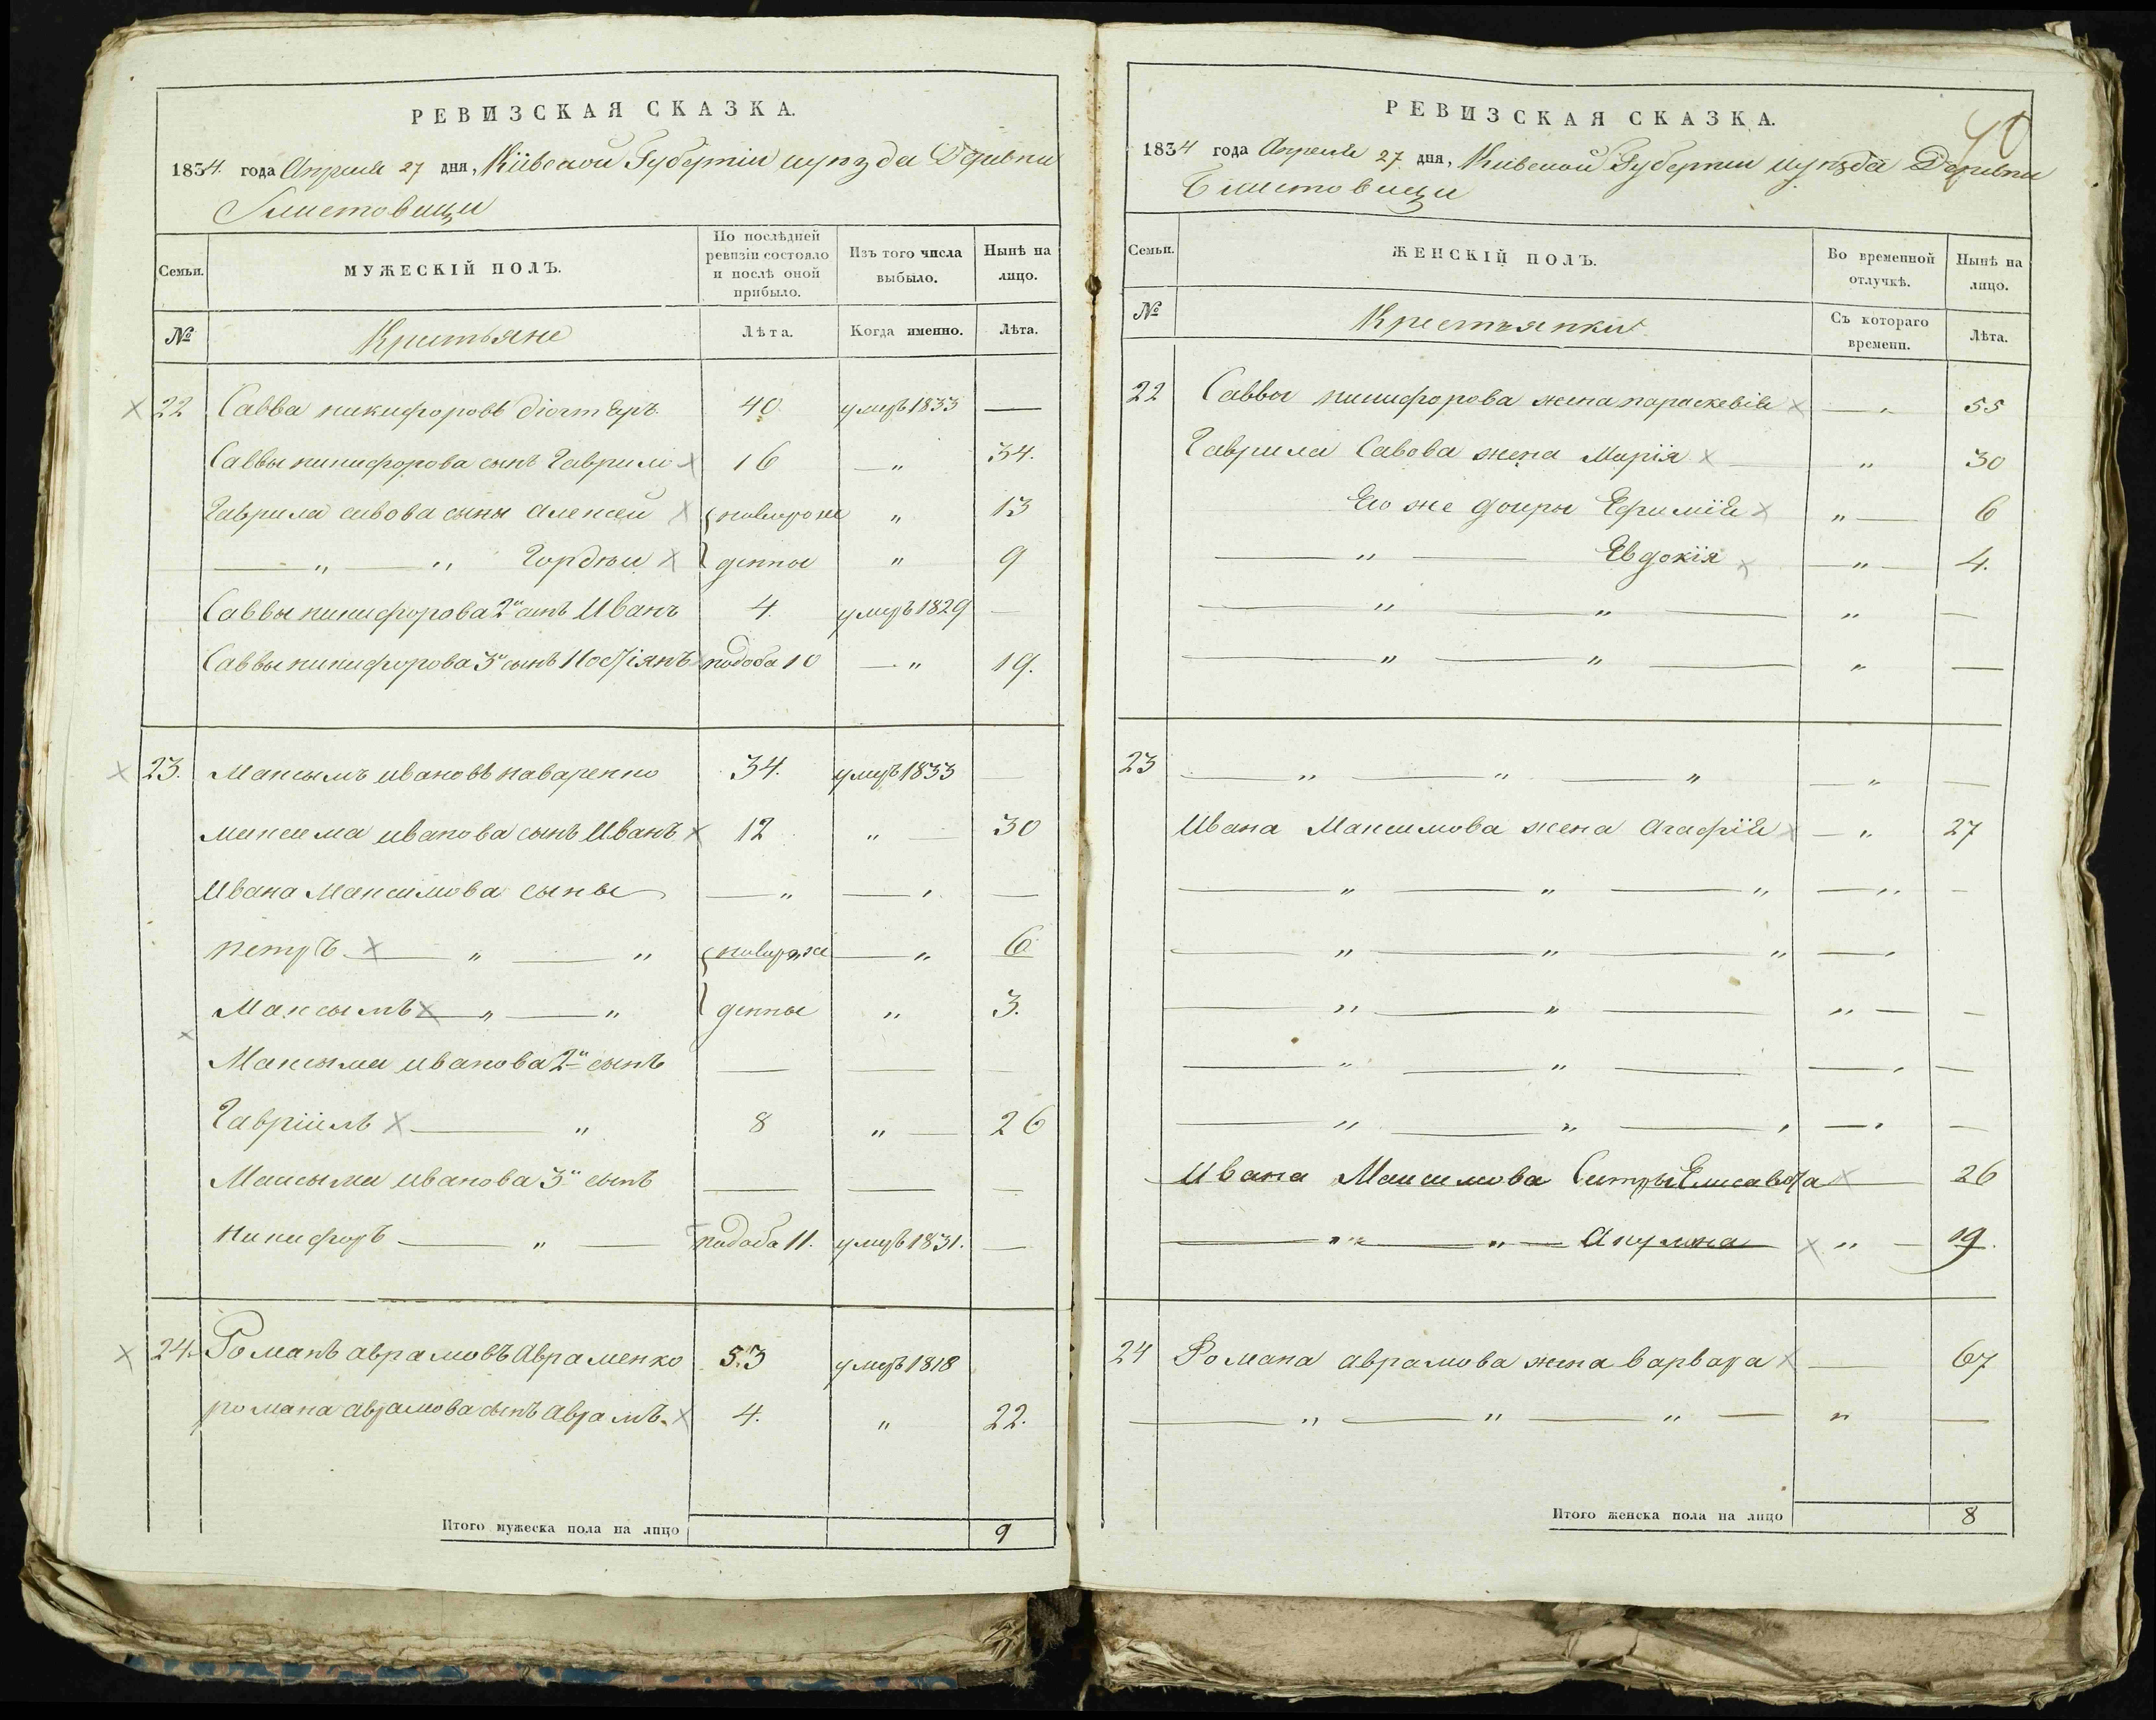 РЕВИЗСКАЯ СКАЗКА.
1834. года Апреля 27 дня, Кіівской Губерніи и уѣзда Деревни
Блистовици
Семьи.
МУЖЕСКІЙ ПОЛЪ.
По послѣдней ревизіи состояло и послѣ оной прибыло.
Изъ того числа выбыло.
Нынѣ на лицо.
№
Лѣта.
Когда именно.
Лѣта.
22 Савва никифоровъ 40 умеръ 1833 —
Саввы никифорова сынъ Гаврило 16 — „ 34.
Гаврила савова сыны Алексей новорож „ 13
— „ — „ Гордѣи денные „ 9
Саввы никифорова 2й сынъ Иванъ 4. умеръ 1829 —
Саввы никифорова 3й сынъ 10 — „ 19.
23. Максымъ ивановъ назаренко 34. умеръ 1833 —
максима иванова сынъ Иванъ 12 „ — 30
Ивана Максимова сыны — „ — „ —
петръ — „ — „ новорож — „ 6
Максымъ — „ — „ денные „ 3.
Максыма иванова 2й сынъ — — —
Гавріилъ — „ 8 „ — 26
Максыма иванова 3й сынъ — — —
Никифоръ — „ — 11. умеръ 1831. —
24. Романъ аврамовъ Авраменко 53 умеръ 1818
романа аврамова сынъ аврамъ 4. „ 22.
Итого мужеска пола на лицо 9
РЕВИЗСКАЯ СКАЗКА.
40
1834 года Апреля 27 дня, Кіевской Губерніи и уѣзда Деревни
Блистовици
Семьи.
ЖЕНСКІЙ ПОЛЪ.
Во временной отлучкѣ.
Нынѣ на лицо.
№
Крестьянки
Съ котораго времени.
Лѣта.
22 Саввы никифорова жена параскевія — „ 55
Гаврила Савова жена Марія — „ 30
Его же дочры Ефимія „ — 6
— „ — Евдокія — „ — 4.
— „ — „ — „ —
— „ — „ — „ —
23 — „ — „ — „ — „ —
Ивана Максимова жена Агафія — „ 27
— „ — „ — „ — „ —
— „ — „ — „ — „
— „ — „ — „ — —
— „ — „ — — „ —
— „ — „ — „ — „ —
Ивана Максимова Систры Елисавета — 26
— „ — „ — Акулина „ — 19.
24 Романа аврамова жена варвара — 67
— „ — „ — „ — „ —
Итого женска пола на лицо 8